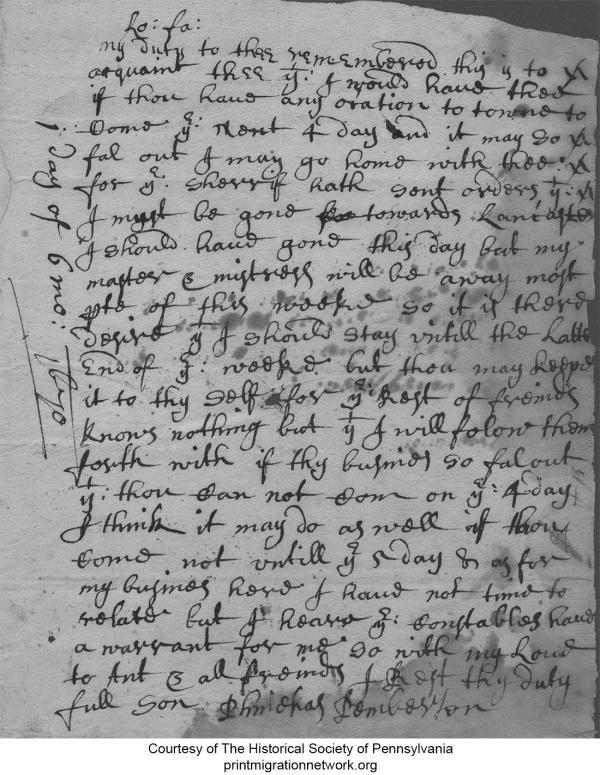 Lo: fa:
my duty to thee remembered this is to
acquaint thee yt: I would have thee
if thou have any ocation to towne to
Come ye: next 4 day and it may so
fal out I may go home with thee:
for ye: Sherrif hath sent orders yt:
I must be gone towards Lancaster
I should have gone this day but my
master & mistress will be away most
pte of this weeke so it is there
desire yt I should stay untill the Latter
End of ye: weeke but thou may keepe
it to thy self for ye: Rest of freinds
knows nothing but yt I will folow them
forth with if thy busines so fal out
yt: thou Can not Com on ye: 4 day
I think it may do as well if thou
Come not untill ye 5 day & as for
my busines here I have not time to
relate but I heare ye: Constables have
a warrant for me so with my Love
to Ant & all freinds I Rest thy duty
full son Phinehas Pemberton
1 day of 6 mo: 1670
Courtesy of The Historical Society of Pennsylvania
printmigrationnetwork.org